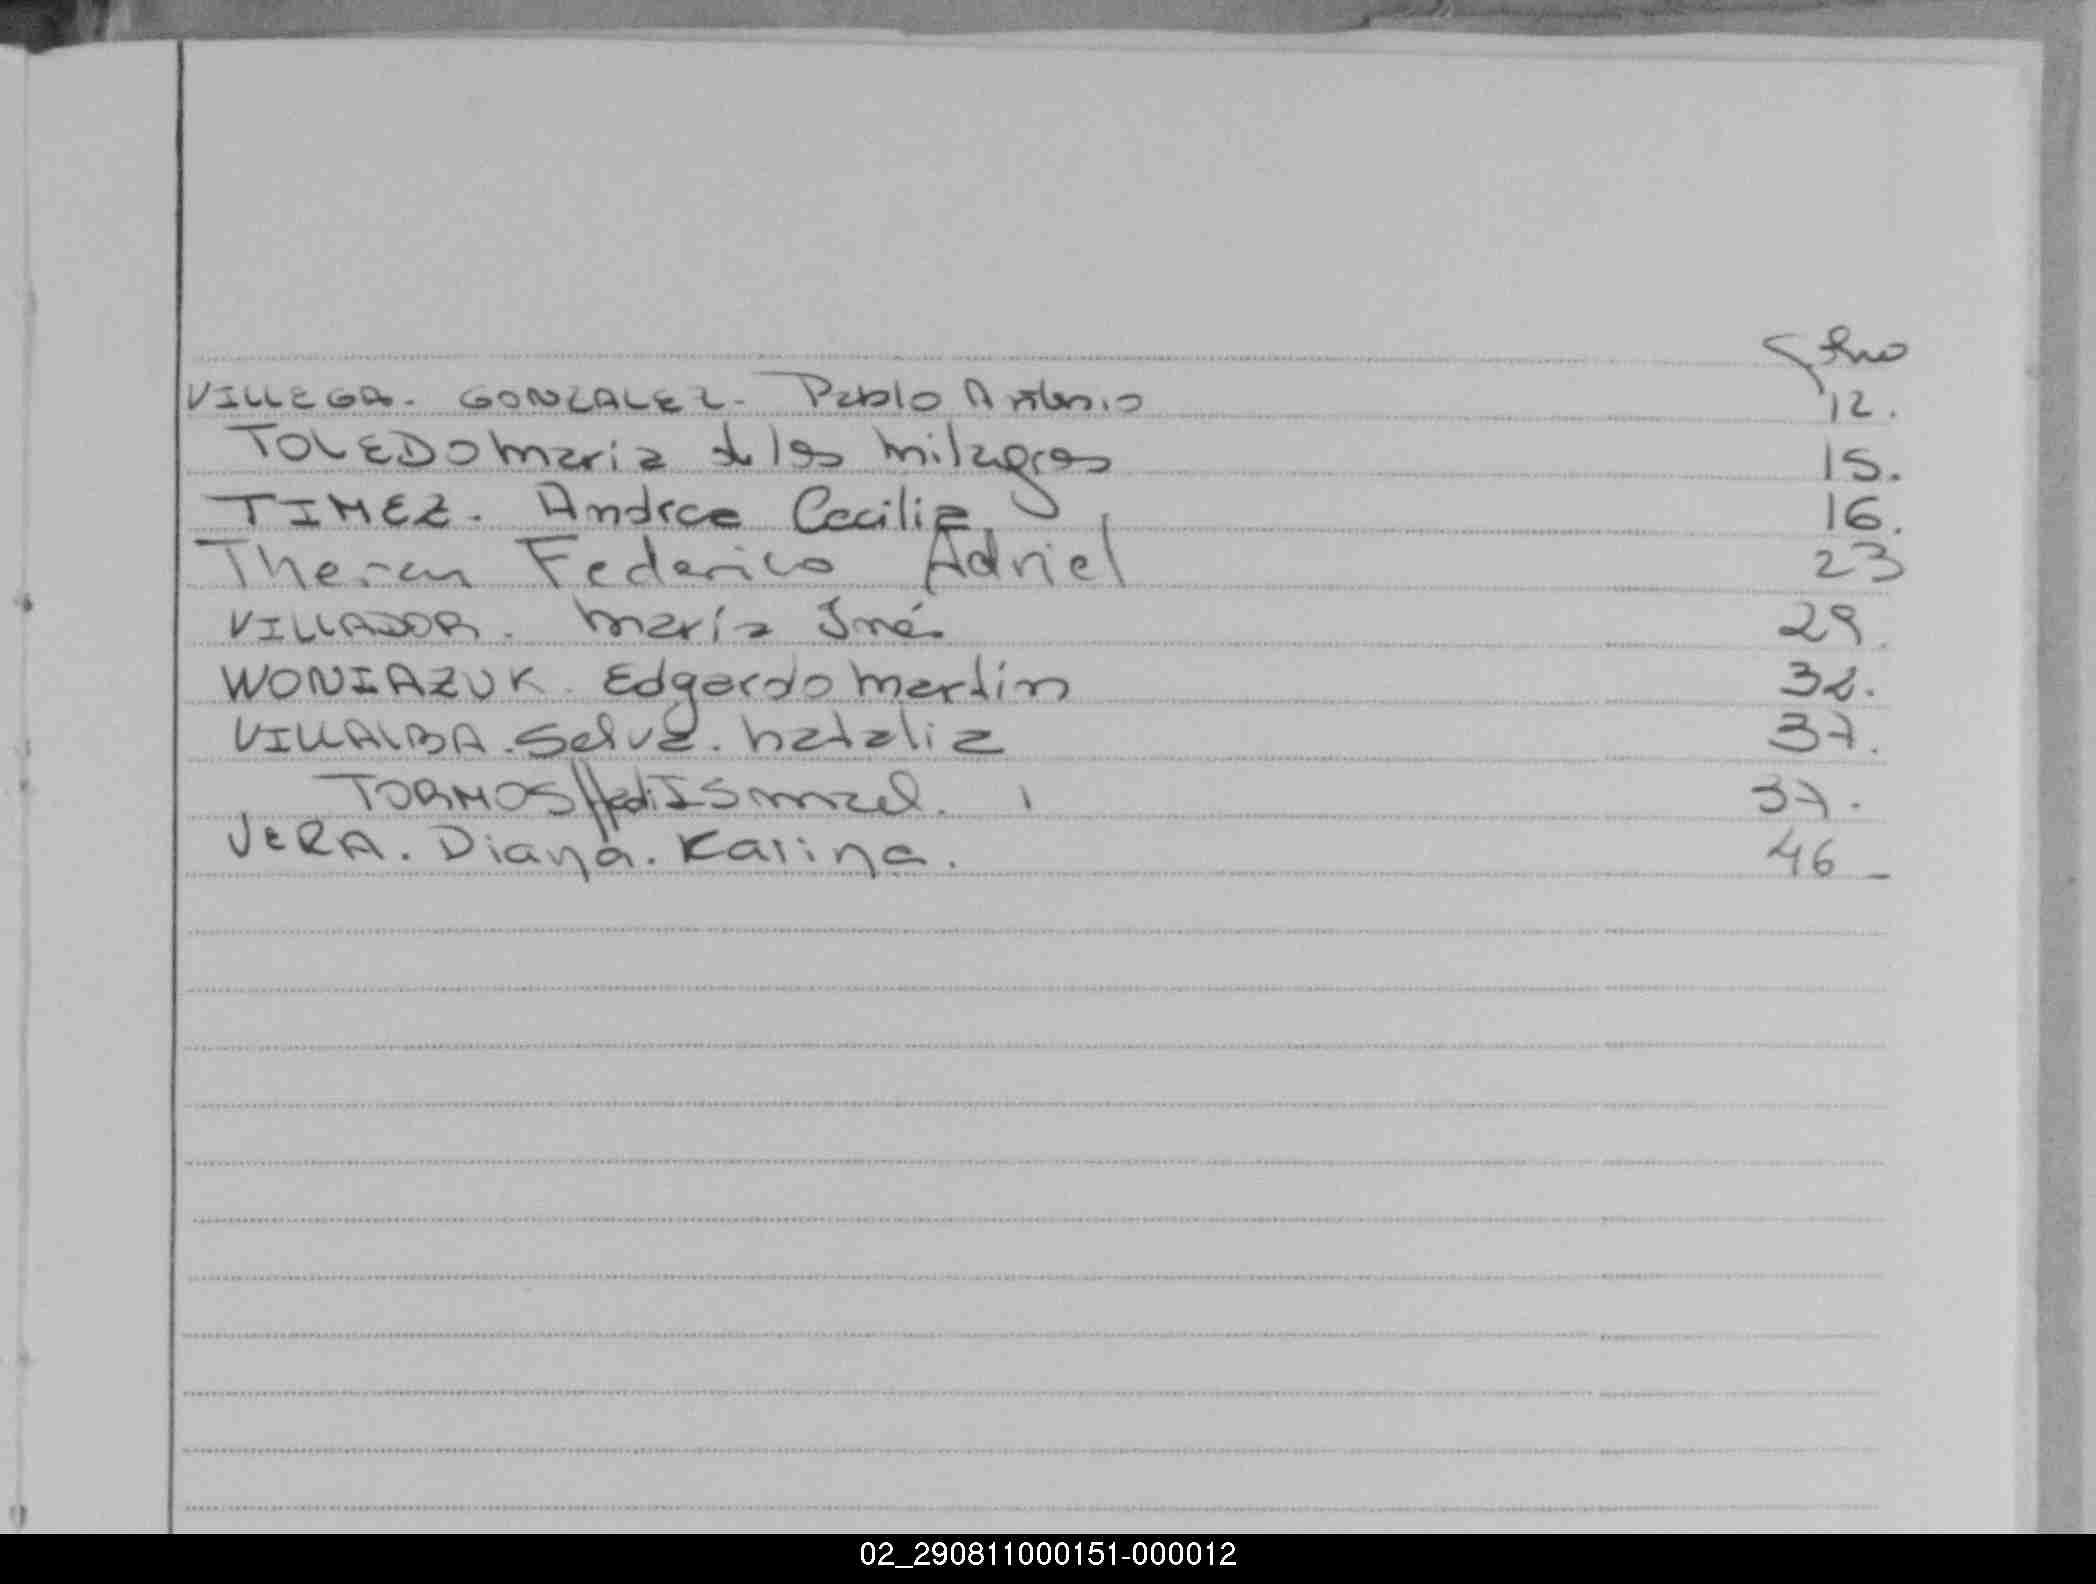 VILLEGA. GONZALEZ. Pablo Antonio 12.
TOLEDO maria de los milagros 15.
TIMEZ. Andrea Cecilia 16.
Theran Federico Adriel 23
VILLADOR. maría Inés 29.
WONIAZUK. Edgardo martín 32.
VILLALBA. Selva. nataliz 37.
TORMOS Ismael. 37.
VERA. Diana. Karina. 46
02_290811000151-000012